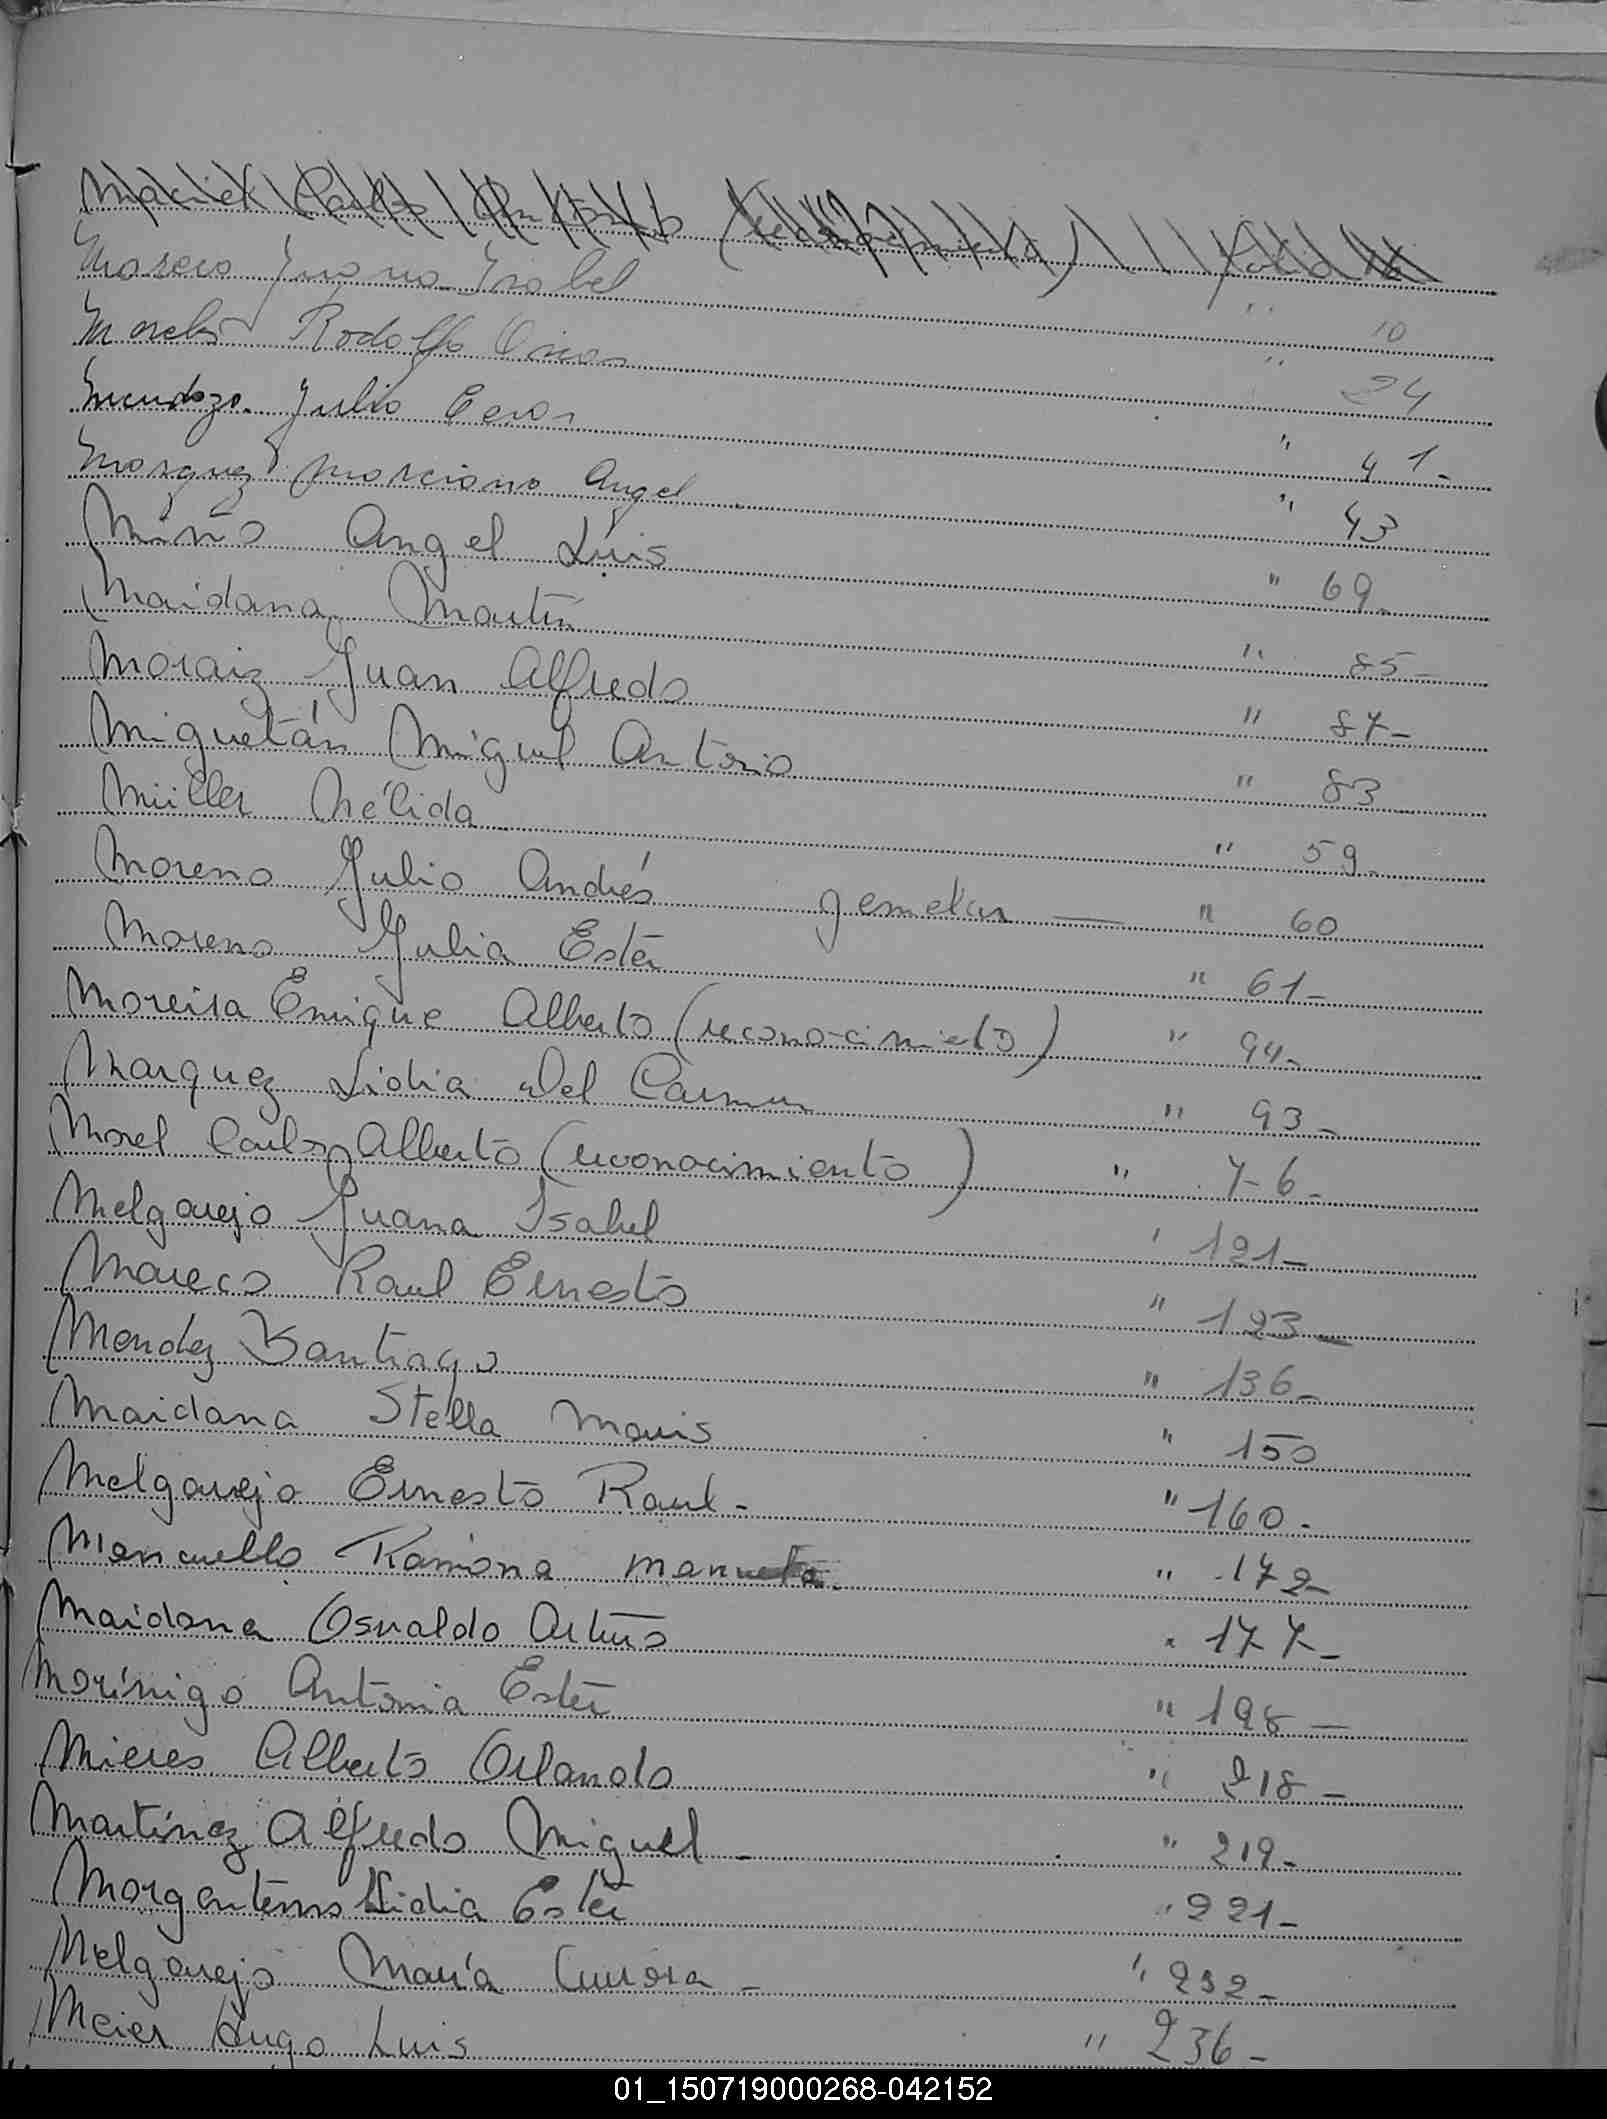 Mareco Juana Isabel " 10
Morel Rodolfo Oscar " 24
Mendoza Julio Cesar " 41-
Marquez Marciano Angel " 43
Miño Angel Luis " 69-
Maidana Martín " 85-
Moraiz Juan Alfredo " 87-
Miguetán Miguel Antonio " 83
Müller Nélida " 59-
Moreno Julio Andrés gemelar — " 60
Moreno Julia Ester " 61-
Moreira Enrique Alberto (reconocimieto) " 94-
Marquez Lidia Del Carmen " 93-
Morel Carlos Alberto (reconocimiento) " 76-
Melgarejo Juana Isabel " 121-
Mareco Raul Ernesto " 123-
Mendez Santiago " 136-
Maidana Stella Maris " 150
Melgarejo Ernesto Raul- " 160-
Mancuello Ramona " 172-
Maidana Osvaldo Arturo " 177-
Morínigo Antonia Ester " 198-
Mieres Alberto Orlando " 218-
Martínez Alfredo Miguel- " 219-
Ester " 221-
Melgarejo María Aurora- " 232-
Meier Hugo Luis " 236-
01_150719000268-042152